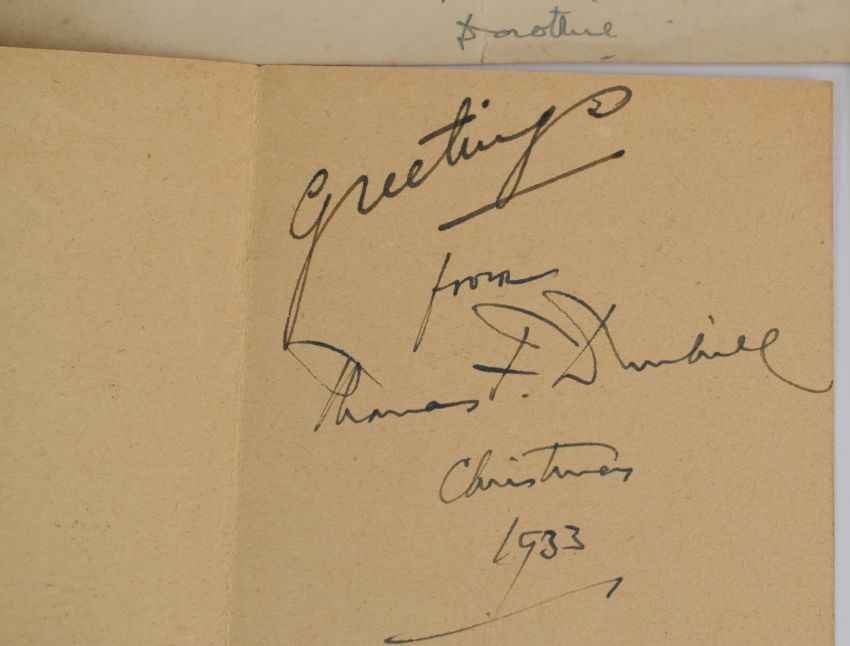 Dorothie
Greetings
from
Thomas F. Dunhill
Christmas
1933